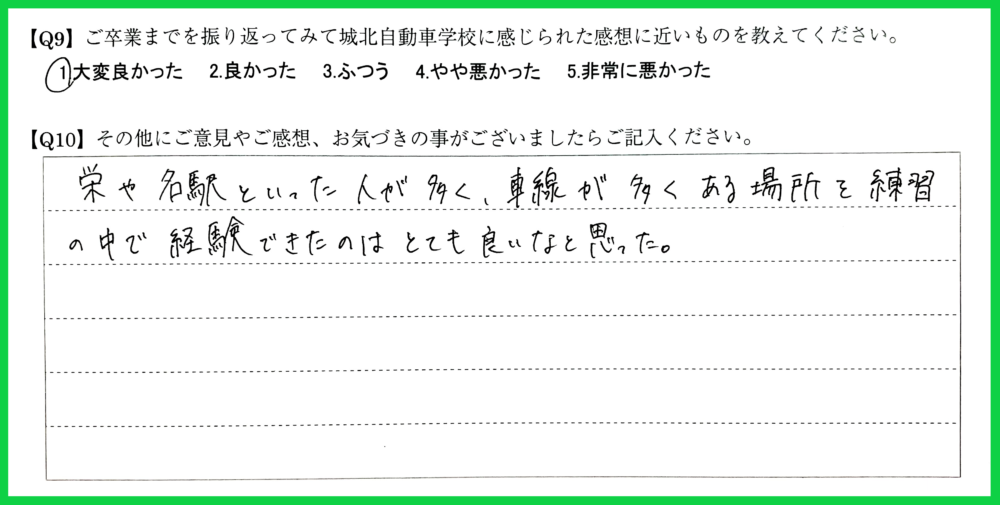 【Q9】ご卒業までを振り返ってみて城北自動車学校に感じられた感想に近いものを教えてください。
1.大変良かった 2.良かった 3.ふつう 4.やや悪かった 5.非常に悪かった
【Q10】その他にご意見やご感想、お気づきの事がございましたらご記入ください。
栄や名駅といった人が多く、車線が多くある場所を練習
の中で経験できたのはとても良いなと思った。